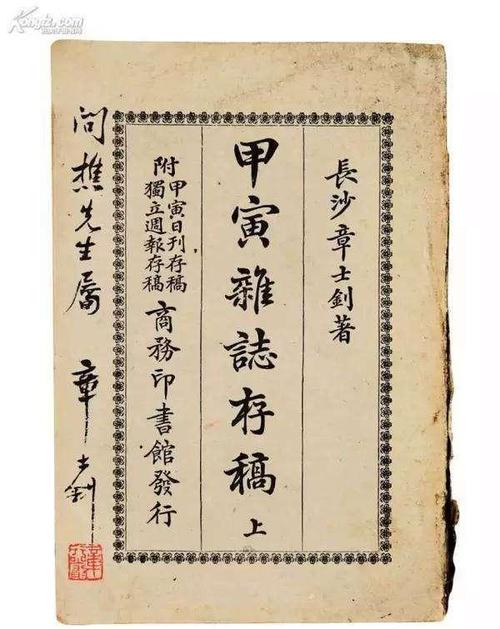 長沙章士釗著
甲寅雜誌存稿 上
附甲寅日刊存稿
獨立週報存稿
商務印書館發行
問樵先生屬 章士釗
Kongfz.com